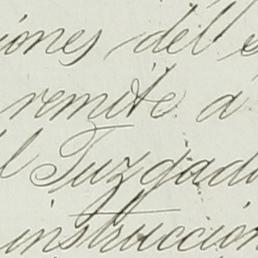 iones del s
remite a
l Juzgado
instrucción